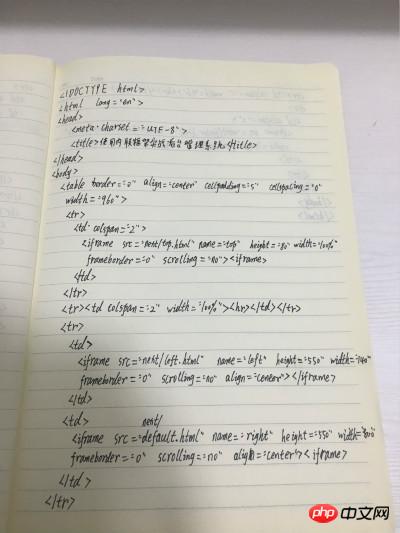 <!DOCTYPE html>
<html lang="en">
<head>
<meta charset="UTF-8">
<title>使用内联框架实战后台管理系统</title>
</head>
<body>
<table border="0" align="center" cellpadding="5" cellspacing="0"
width="960">
<tr>
<td colspan="2">
<iframe src="nent/top.html" name="top" height="80" width="100%"
frameborder="0" scrolling="no"><iframe>
</td>
</tr>
<tr><td colspan="2" width="100%"><hr></td></tr>
<tr>
<td>
<iframe src="nent/left.html" name="left" height="550" width="140"
frameborder="0" scrolling="no" align="center"></iframe>
</td>
<td>
nent/
<iframe src="default.html" name="right" height="550" width="800"
frameborder="0" scrolling="no" align="center"><iframe>
</td>
</tr>
php 中文网